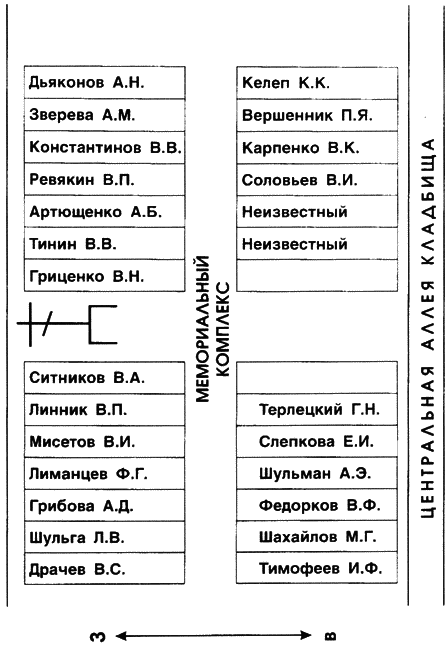 Дьяконов А.Н.
Зверева А.М.
Константинов В.В.
Ревякин В.П.
Артющенко А.Б.
Тинин В.В.
Гриценко В.Н.
Ситников В.А.
Линник В.П.
Мисетов В.И.
Лиманцев Ф.Г.
Грибова А.Д.
Шульга Л.В.
Драчев В.С.
МЕМОРИАЛЬНЫЙ
КОМПЛЕКС
Келеп К.К.
Вершенник П.Я.
Карпенко В.К.
Соловьев В.И.
Неизвестный
Неизвестный
Терлецкий Г.Н.
Слепкова Е.И.
Шульман А.Э.
Федорков В.Ф.
Шахайлов М.Г.
Тимофеев И.Ф.
ЦЕНТРАЛЬНАЯ АЛЛЕЯ КЛАДБИЩА
З
В